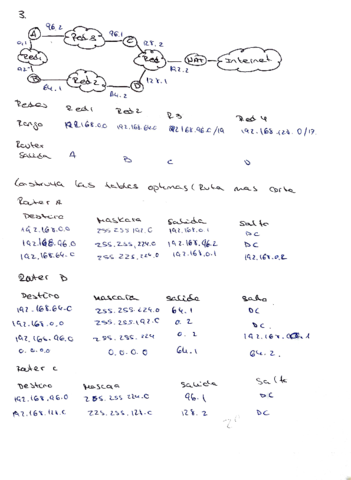 3.
A 96.2 Red3 96.1 C
0.1 128.2
Red1 Red4 NAT Internet
0.2 192.2
B 64.1 Red2 64.2 D 128.1
Redes Red1 Red2 R3 Red 4
Rango 192.168.0.0 192.168.64.0 192.168.96.0/19 192.168.128.0/17
Router
Salida A B C D
Construya las tablas optimas (Ruta mas corta
Router A
Destino Mascara Salida Salto
192.168.0.0 255.255.192.0 192.168.0.1 DC
192.168.96.0 255.255.224.0 192.168.96.2 DC
192.168.64.0 255.225.224.0 192.168.0.1 192.168.0.2
Router B
Destino Mascara Salida Salto
192.168.64.0 255.255.224.0 64.1 DC
192.168.0.0 255.255.192.0 0.2 DC
192.168.96.0 255.255.224 0.2 192.168.0.1
0.0.0.0 0.0.0.0 64.1 64.2
Router C
Destino Mascara Salida Salto
192.168.96.0 255.255.224.0 96.1 DC
192.168.128.0 225.255.128.0 128.2 DC